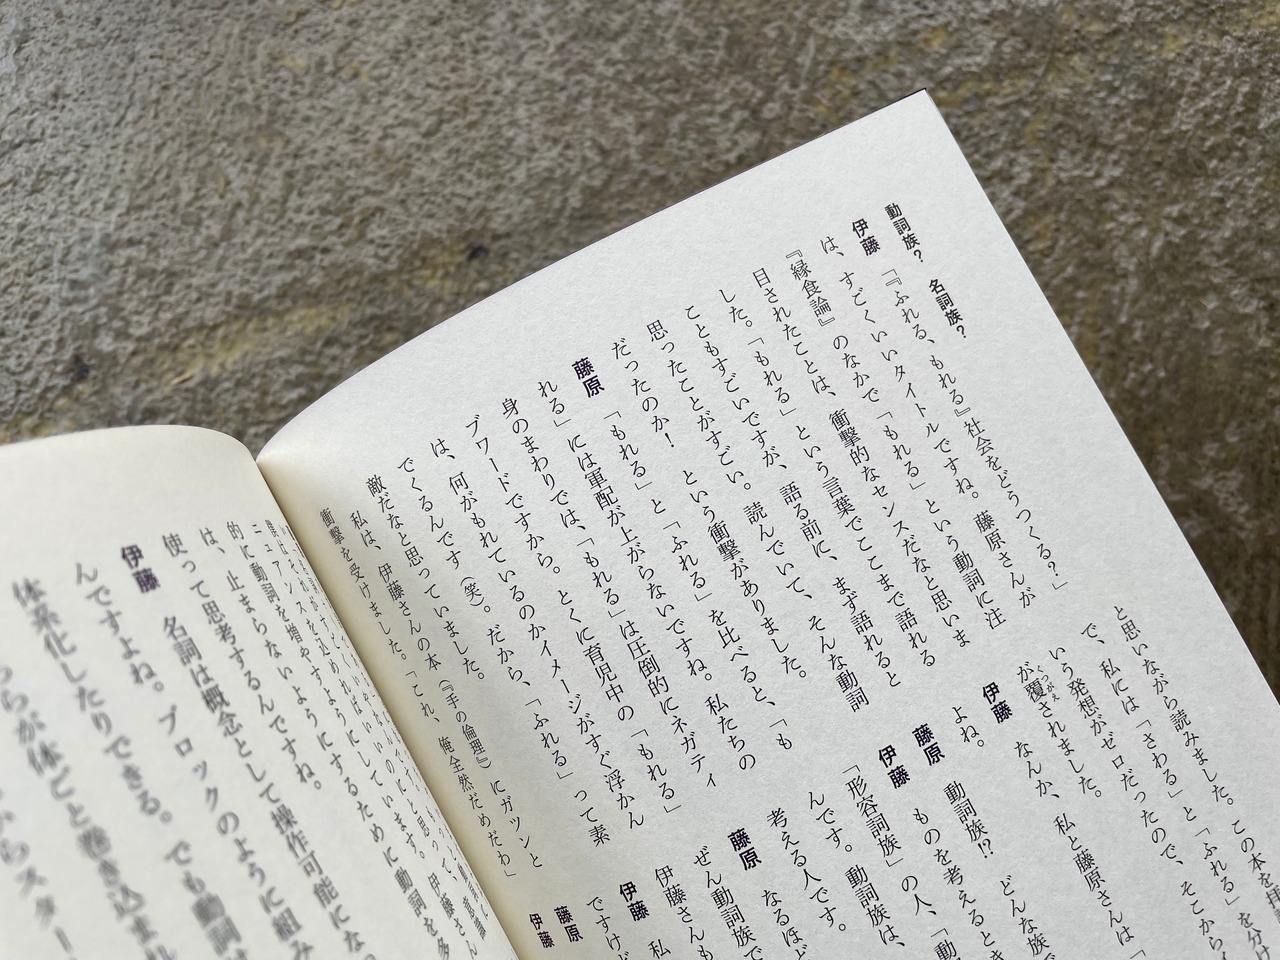 動詞族? 名詞族?
伊藤 「『ふれる、もれる』社会をどうつくる?」
は、すごくいいタイトルですね。藤原さんが
『縁食論』のなかで「もれる」という動詞に注
目されたことは、衝撃的なセンスだなと思いま
した。「もれる」という言葉でここまで語れる
こともすごいですが、語る前に、まず語れると
思ったことがすごい。読んでいて、そんな動詞
だったのか! という衝撃がありました。
藤原 「もれる」と「ふれる」を比べると、「も
れる」には軍配が上がらないですね。私たちの
身のまわりでは、「もれる」は圧倒的にネガティ
ブワードですから。とくに育児中の「もれる」
は、何がもれているのかイメージがすぐ浮かん
でくるんです(笑)。だから、「ふれる」って素
敵だなと思っていました。
私は、伊藤さんの本(『手の倫理』)にガツンと
衝撃を受けました。「これ、俺全然だめだわ」
と思いながら読みました。この本を拝
で、私には「さわる」と「ふれる」を分け
いう発想がゼロだったので、そこから
が覆されました。
くつがえ
伊藤 なんか、私と藤原さんは「
よね。
藤原 動詞族!? どんな族で
伊藤 ものを考えるとき
「形容詞族」の人、「動
んです。動詞族は、
考える人です。
藤原 なるほど
ぜん動詞族で
伊藤さんも
伊藤 私
ですけど
藤原
伊藤
ニュアンスを込めようにしています。動詞を多
的に動詞を増やすようにするために
は、止まらないんですね。
使って思考するんですね。
伊藤 名詞は概念として操作可能にな
んですよね。ブロックのように組み
体系化したりできる。でも動詞は
らが体ごと巻き込まれ
からスター